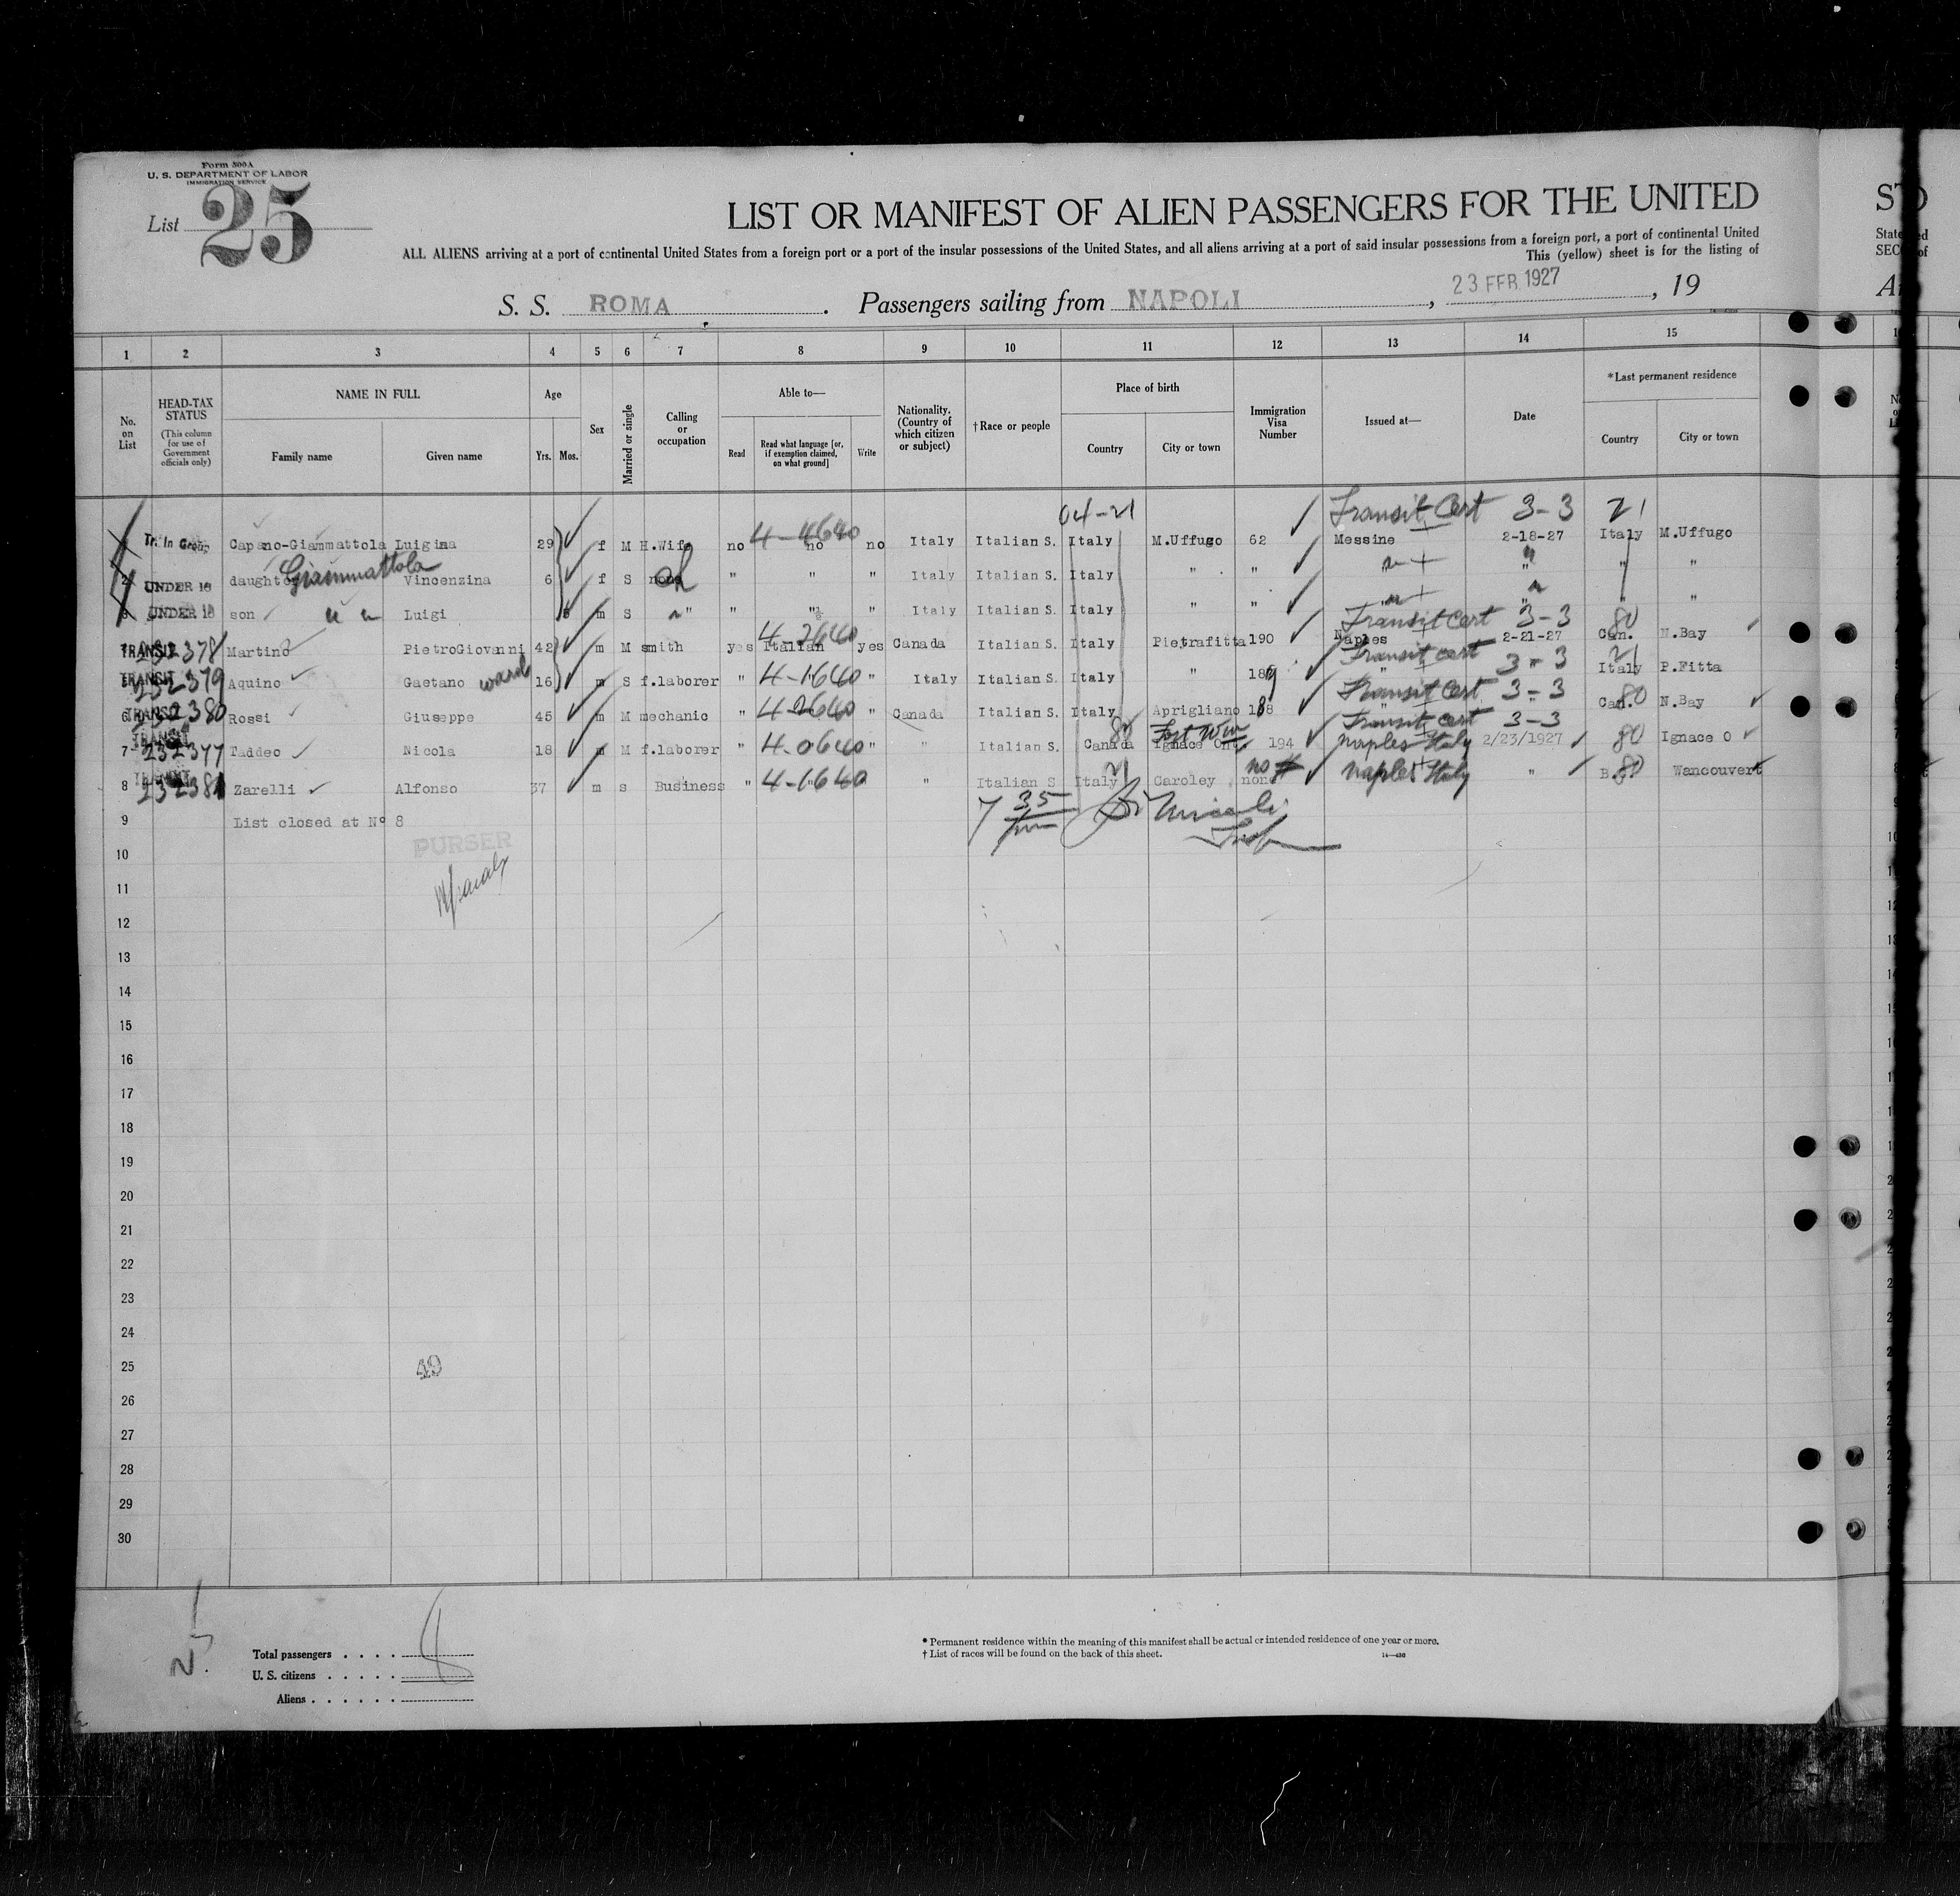 Form 500A
U. S. DEPARTMENT OF LABOR
IMMIGRATION SERVICE
List 25
LIST OR MANIFEST OF ALIEN PASSENGERS FOR THE UNITED
ALL ALIENS arriving at a port of continental United States from a foreign port or a port of the insular possessions of the United States, and all aliens arriving at a port of said insular possessions from a foreign port, a port of continental United
This (yellow) sheet is for the listing of
S. S. ROMA. Passengers sailing from NAPOLI, 23 FEB 1927, 19
1 2 3 4 5 6 7 8 9 10 11 12 13 14 15
No. on List
HEAD-TAX STATUS (This column for use of Government officials only)
NAME IN FULL Family name Given name
Age Yrs. Mos.
Sex
Married or single
Calling or occupation
Able to— Read Read what language [or, if exemption claimed, on what ground] Write
Nationality. (Country of which citizen or subject)
†Race or people
Place of birth Country City or town
Immigration Visa Number
Issued at—
Date
*Last permanent residence Country City or town
04-21 Transit Cert 3-3 21
Tr. In Group Capano-Giammattola Luigina 29 f M H.Wife no 4-4640 no no Italy Italian S. Italy M.Uffugo 62 Messine 2-18-27 Italy M.Uffugo
2 UNDER 16 daughter Giammattola Vincenzina 6 f S none " " " Italy Italian S. Italy " " " " "
UNDER 18 son " " Luigi m S " " " " Italy Italian S. Italy " " " " "
Transit Cert 3-3 80
TRANSIT 232378 Martino PietroGiovanni 42 m M smith yes 4-2640 Italian yes Canada Italian S. Italy Pietrafitta 190 Naples 2-21-27 Can. N.Bay
Transit cert 3-3 21
TRANSIT 232379 Aquino Gaetano ward 16 m S f.laborer " 4-1640 " Italy Italian S. Italy " 189 " Italy P.Fitta
Transit Cert 3-3 80
6 TRANSIT 232380 Rossi Giuseppe 45 m M mechanic " 4-2640 " Canada Italian S. Italy Aprigliano 188 " " Can. N.Bay
Transit Cert 3-3
7 TRANSIT 232377 Taddeo Nicola 18 m M f.laborer " 4-0640 " " Italian S. Canada 80 Ignace Ont. 194 Naples Italy 2/23/1927 80 Ignace O
8 TRANSIT 232381 Zarelli Alfonso 37 m s Business " 4-1640 " Italian S Italy 21 Caroley none no # Naples Italy " B.C. 80 Wancouvert
9 List closed at Nº 8
PURSER
10
11
12
13
14
15
16
17
18
19
20
21
22
23
24
25
49
26
27
28
29
30
Total passengers . . . . 8
U. S. citizens . . . . .
Aliens . . . . . .
* Permanent residence within the meaning of this manifest shall be actual or intended residence of one year or more.
† List of races will be found on the back of this sheet.
14—430